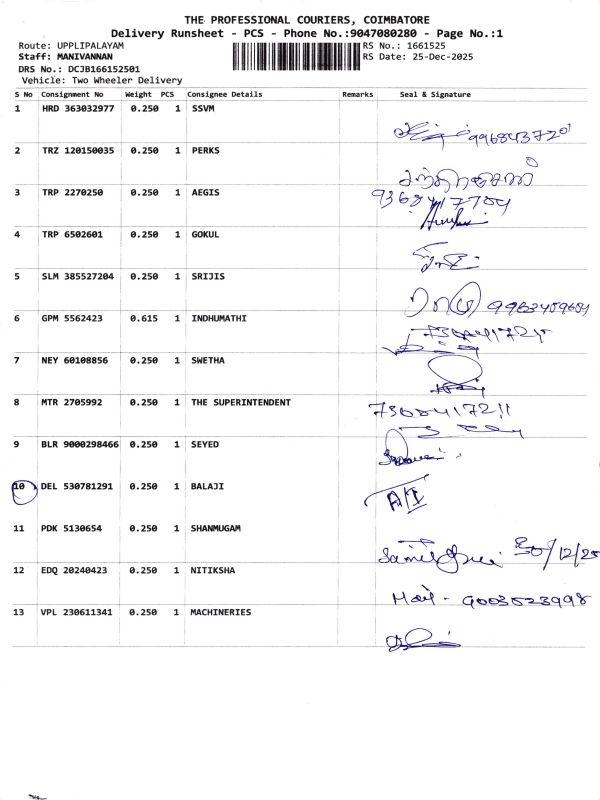 THE PROFESSIONAL COURIERS, COIMBATORE
Delivery Runsheet - PCS - Phone No.:9047080280 - Page No.:1
Route: UPPLIPALAYAM RS No.: 1661525
Staff: MANIVANNAN RS Date: 25-Dec-2025
DRS No.: DCJB166152501
Vehicle: Two Wheeler Delivery
S No Consignment No Weight PCS Consignee Details Remarks Seal & Signature
1 HRD 363032977 0.250 1 SSVM
2 TRZ 120150035 0.250 1 PERKS
3 TRP 2270250 0.250 1 AEGIS
4 TRP 6502601 0.250 1 GOKUL
5 SLM 385527204 0.250 1 SRIJIS
6 GPM 5562423 0.615 1 INDHUMATHI
7 NEY 60108856 0.250 1 SWETHA
8 MTR 2705992 0.250 1 THE SUPERINTENDENT
9 BLR 9000298466 0.250 1 SEYED
10 DEL 530781291 0.250 1 BALAJI A/I
11 PDK 5130654 0.250 1 SHANMUGAM
30/12/25
12 EDQ 20240423 0.250 1 NITIKSHA
9003523998
13 VPL 230611341 0.250 1 MACHINERIES